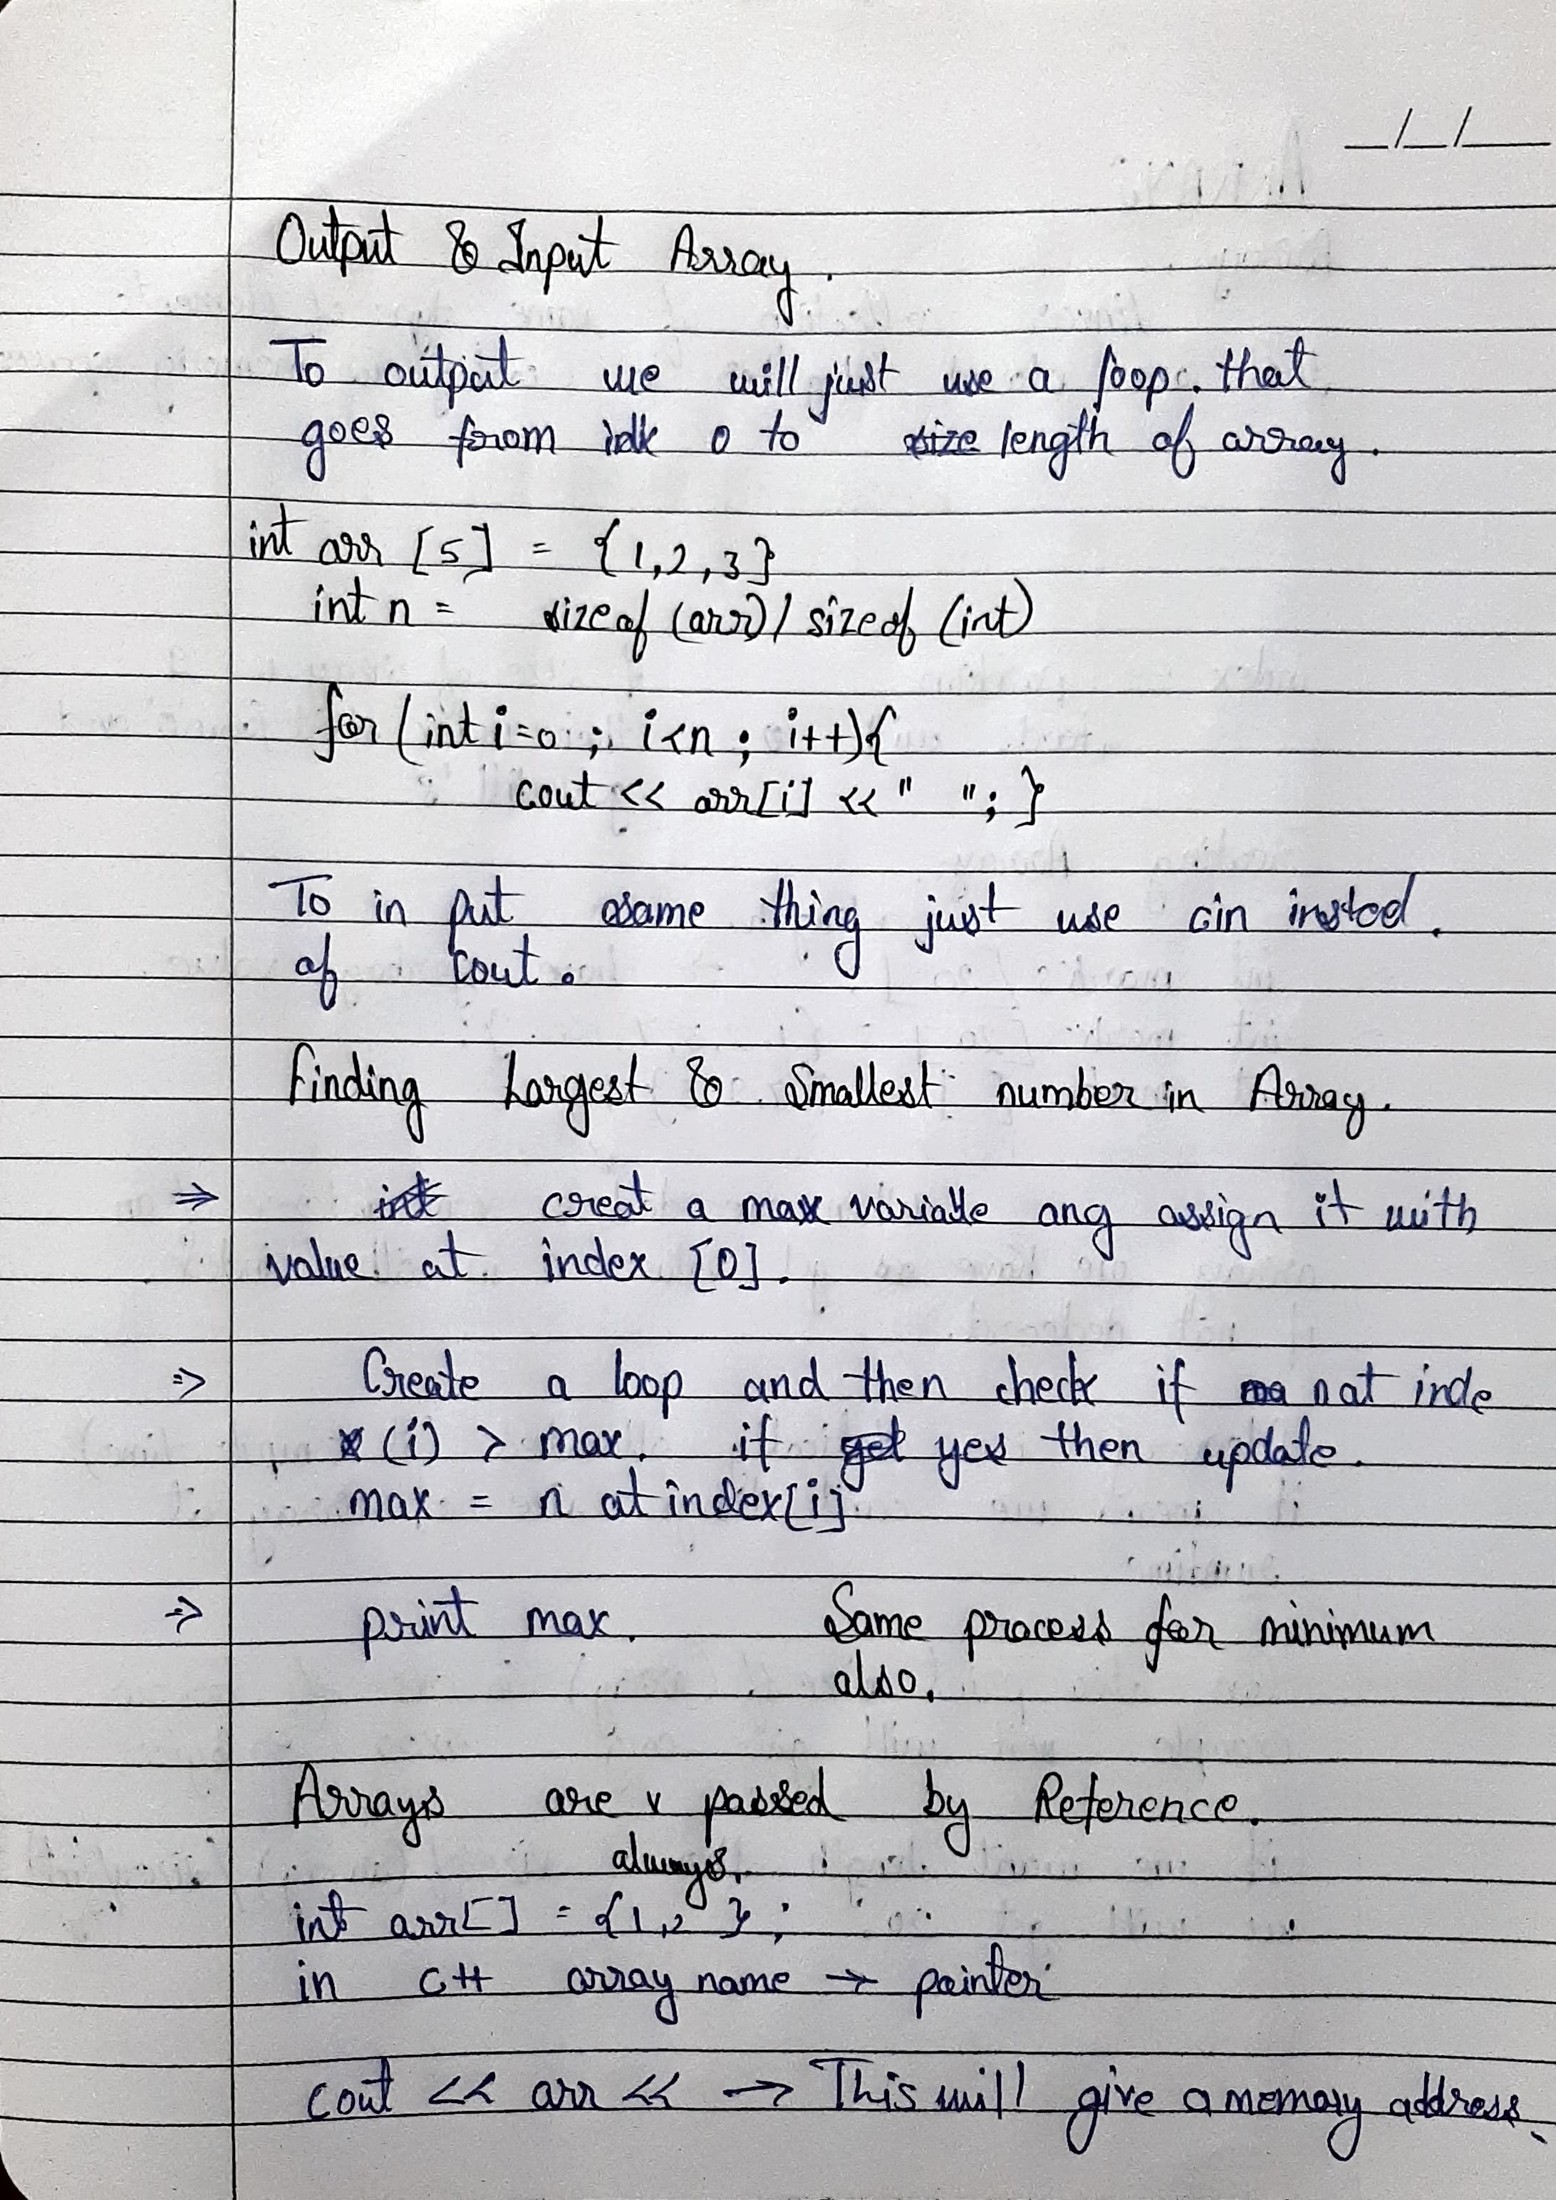 __/__/____
Output & Input Array.
To output we will just use a loop. that
goes from idk 0 to size length of array.
int arr [5] = {1,2,3}
int n = sizeof (arr) / sizeof (int)
for (int i=0 ; i<n ; i++){
cout << arr[i] << " "; }
To in put same thing just use cin insted.
of cout.
Finding Largest & Smallest number in Array.
⇒ int creat a max variable ang assign it with
value at index [0].
⇒ Create a loop and then check if n at inde
x (i) > max. if get yes then update.
max = n at index[i]
⇒ print max. Same process for minimum
also.
Arrays are v passed by Reference.
always.
int arr[] = {1,2 };
in C++ array name → pointer
cout << arr << → This will give a memory address.